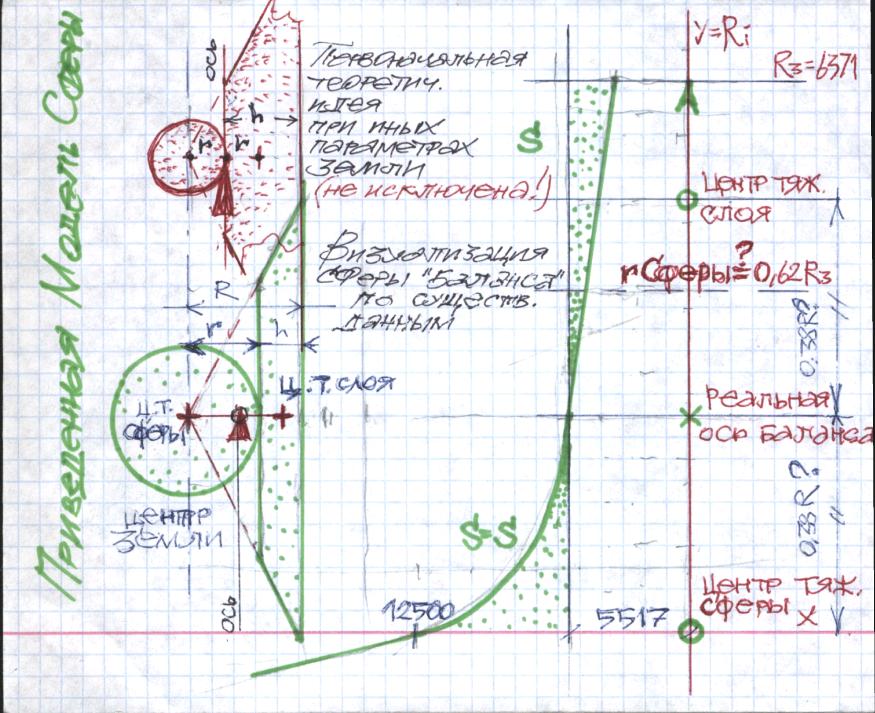 Приведенная Модель Сферы
ось
h
r
r
Первоначальная
теоретич.
идея
при иных
параметрах
Земли
(не исключена!)
Визуализация
Сферы "Баланса"
по существ.
данным
R
r
h
Ц.Т.
сферы
Ц.Т. слоя
центр
Земли
ось
S
S=S
12500
5517
y=Ri
Rз=6371
Центр тяж.
слоя
rСферы=?0,62Rз
0,38R?
Реальная
ось Баланса
0,38R?
Центр тяж.
сферы
x